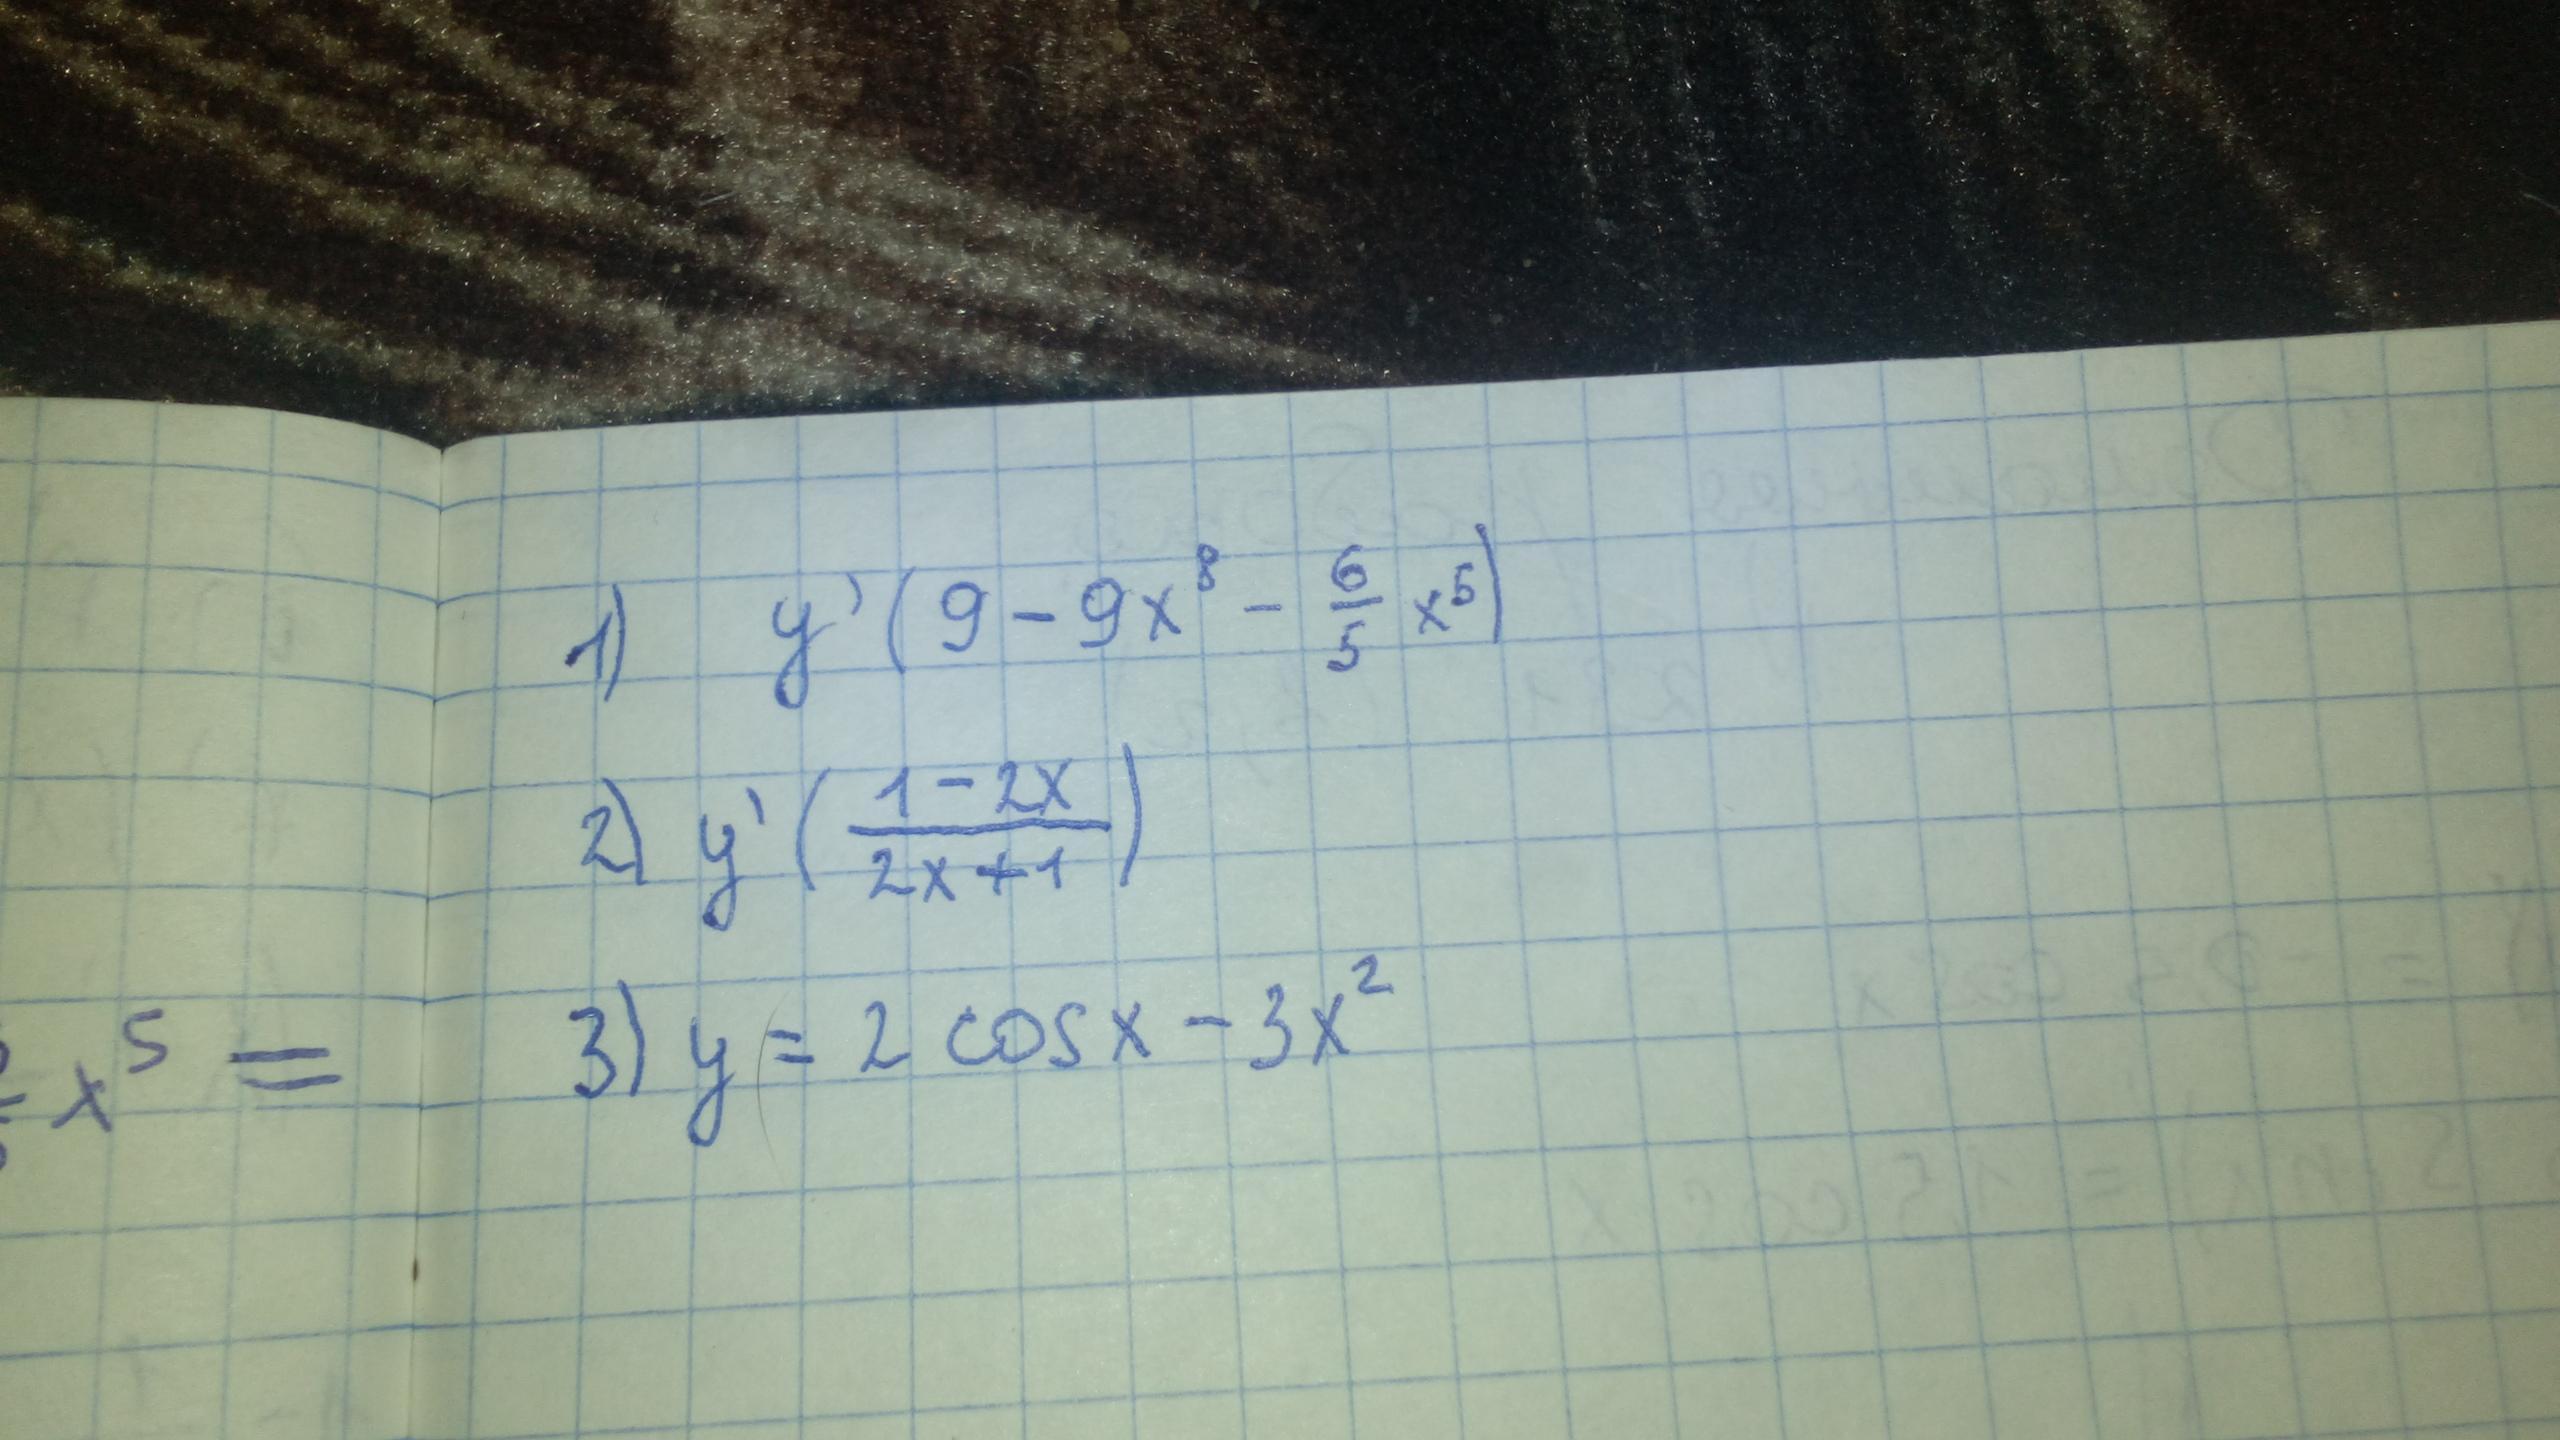 1) y'(9 - 9x⁸ - 6/5 x⁵)
2) y'((1 - 2x)/(2x + 1))
x⁵ =
3) y = 2 cos x - 3x²